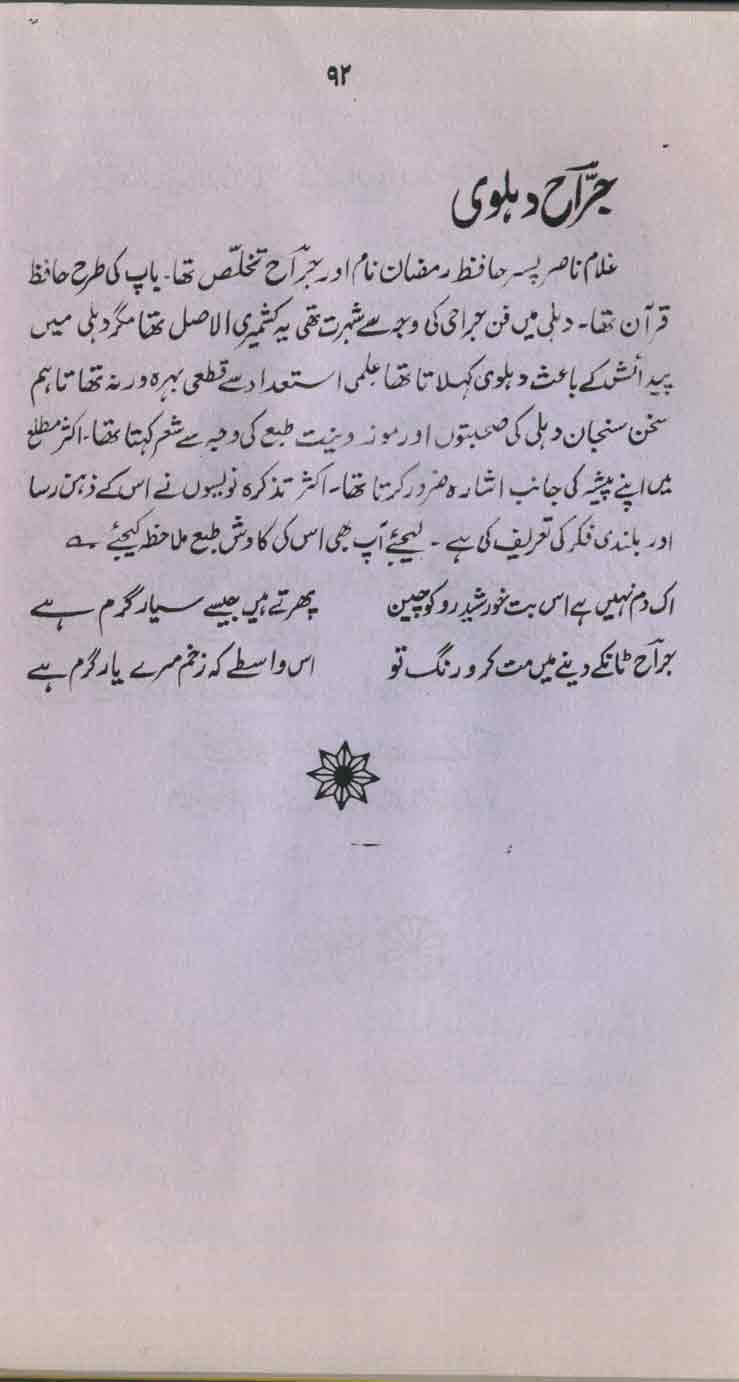 ۹۲
جرّاح دہلوی
غلام ناصر پسر حافظ رمضان نام اور جرّاح تخلّص تھا۔ باپ کی طرح حافظ
قرآن تھا۔ دہلی میں فن جراحی کی وجہ سے شہرت تھی یہ کشمیری الاصل تھا مگر دہلی میں
پیدائش کے باعث دہلوی کہلاتا تھا علمی استعداد سے قطعی بہرہ ور نہ تھا تاہم
سخن سنجان دہلی کی صحبتوں اور موزونیت طبع کی وجہ سے شعر کہتا تھا۔ اکثر مطلع
میں اپنے پیشہ کی جانب اشارہ ضرور کرتا تھا۔ اکثر تذکرہ نویسوں نے اس کے ذہن رسا
اور بلندی فکر کی تعریف کی ہے ۔ لیجئے آپ بھی اس کی کاوش طبع ملاحظہ کیجئے ؎
اک دم نہیں ہے اس بت خورشید رو کو چین پھرتے ہیں جیسے سیار گرم ہے
جرّاح ٹانکے دینے میں مت کر ورنگ تو اس واسطے کہ زخم مرے یار گرم ہے